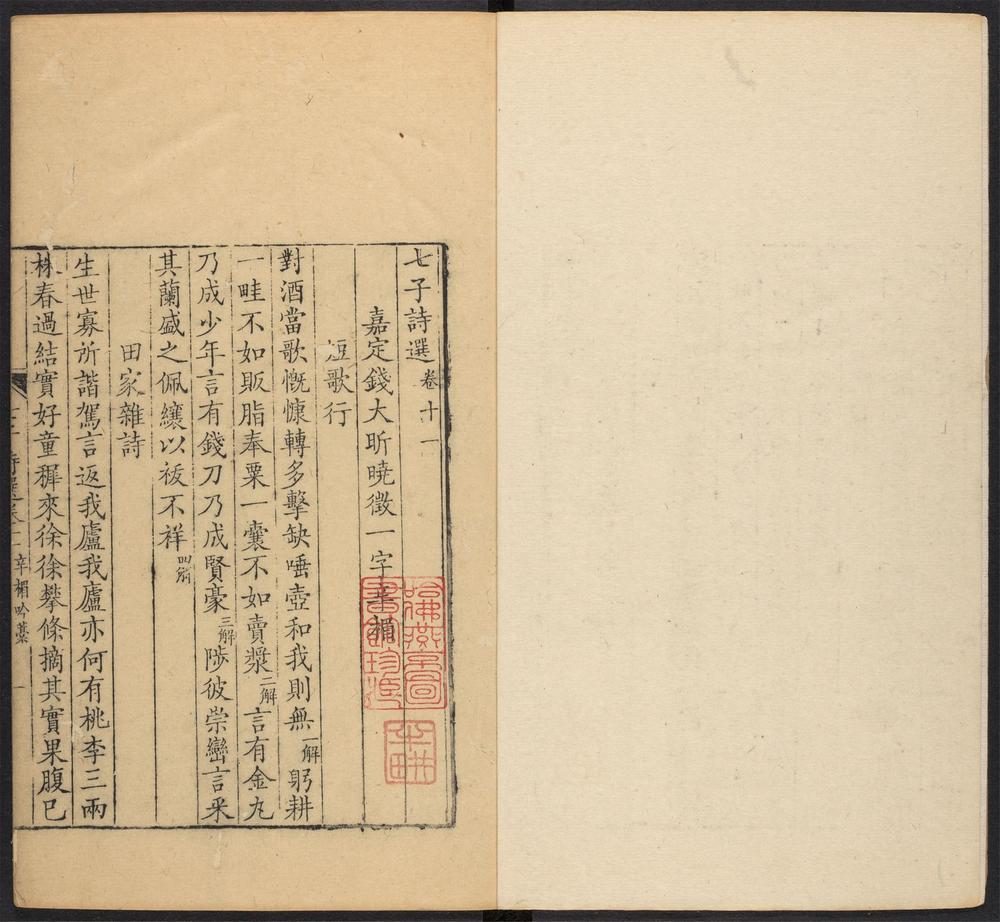 七子詩選卷十一
嘉定錢大昕曉徵一字辛楣
短歌行
對酒當歌慨慷轉多擊缺唾壺和我則無一解躬耕
一畦不如販脂奉粟一囊不如賣漿二解言有金丸
乃成少年言有錢刀乃成賢豪三解陟彼崇巒言采
其蘭盛之佩纕以祓不祥四解
田家雜詩
生世寡所諧駕言返我廬我廬亦何有桃李三兩
株春過結實好童穉來徐徐攀條摘其實果腹已
七子詩選卷十一 辛楣吟藁 一
哈佛燕京圖
書館珍藏